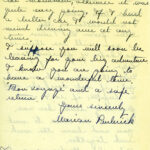 quite my going if I had
a letter I would not
mind driving one at any
time.
I suppose you will soon be
leaving for your big adventure
I know you are going to
have a wonderful time.
Bon voyage and a safe
return
Yours sincerely
Marian